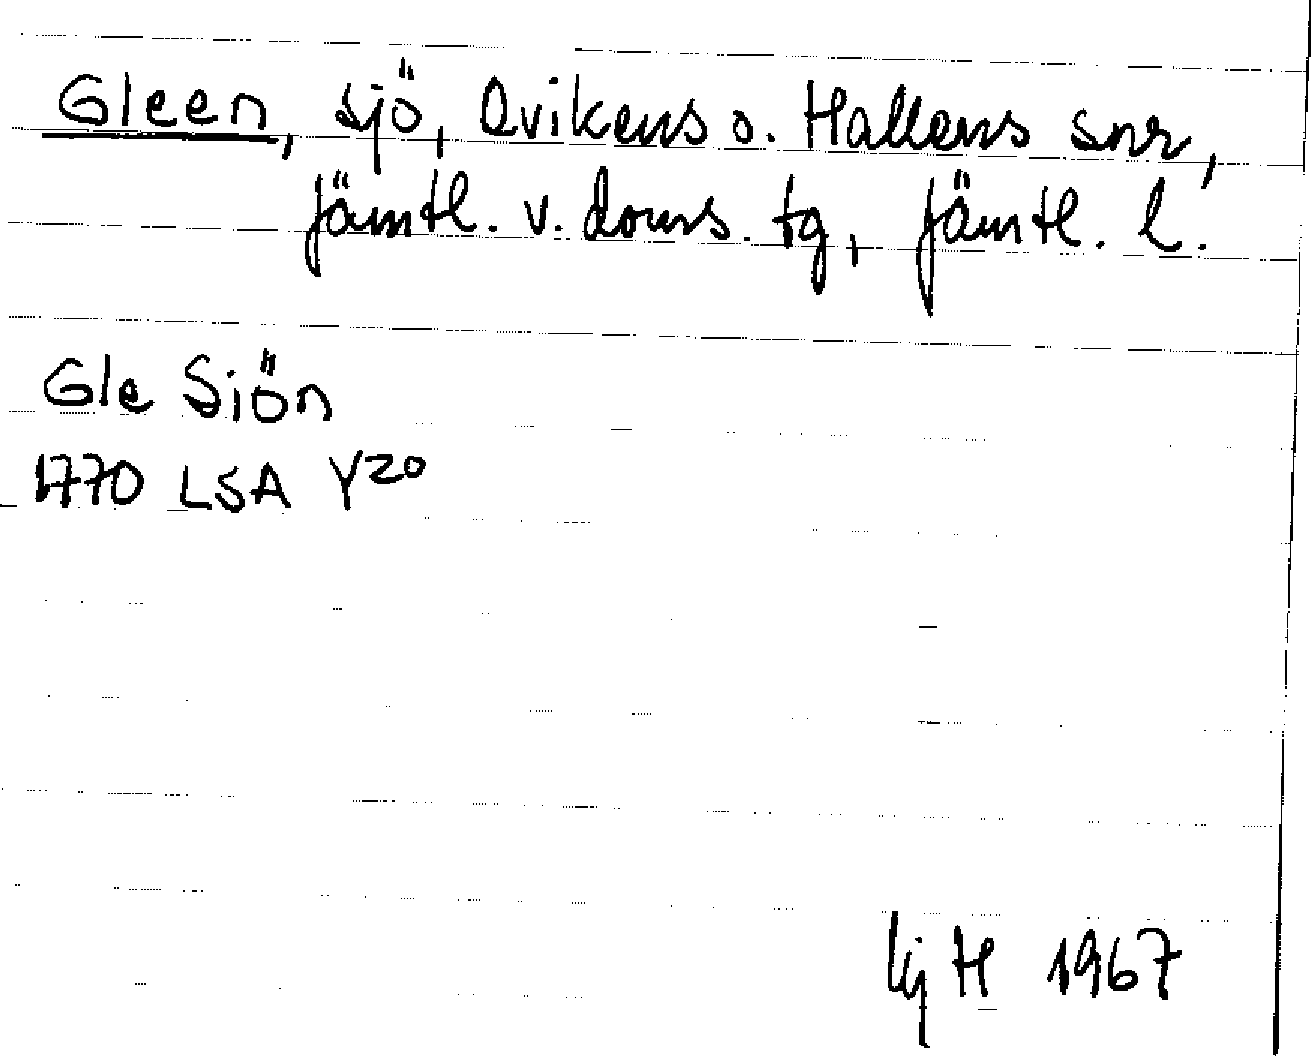 Gleen, sjö, Ovikens o. Hallens snr,
Jämtl. v. doms. tg, Jämtl. l.
Gle Siön
1770 LSA Y20
H 1967